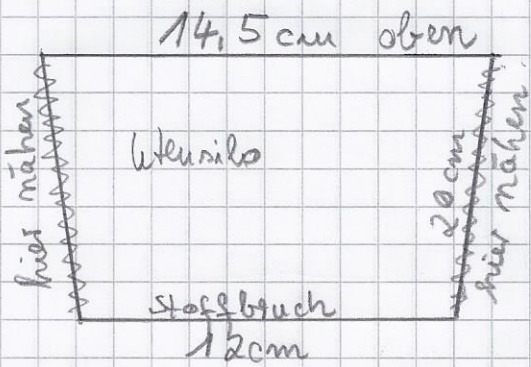 14,5 cm oben
hier nähen
Utensilo
20 cm
hier nähen.
Stoffbruch
12cm